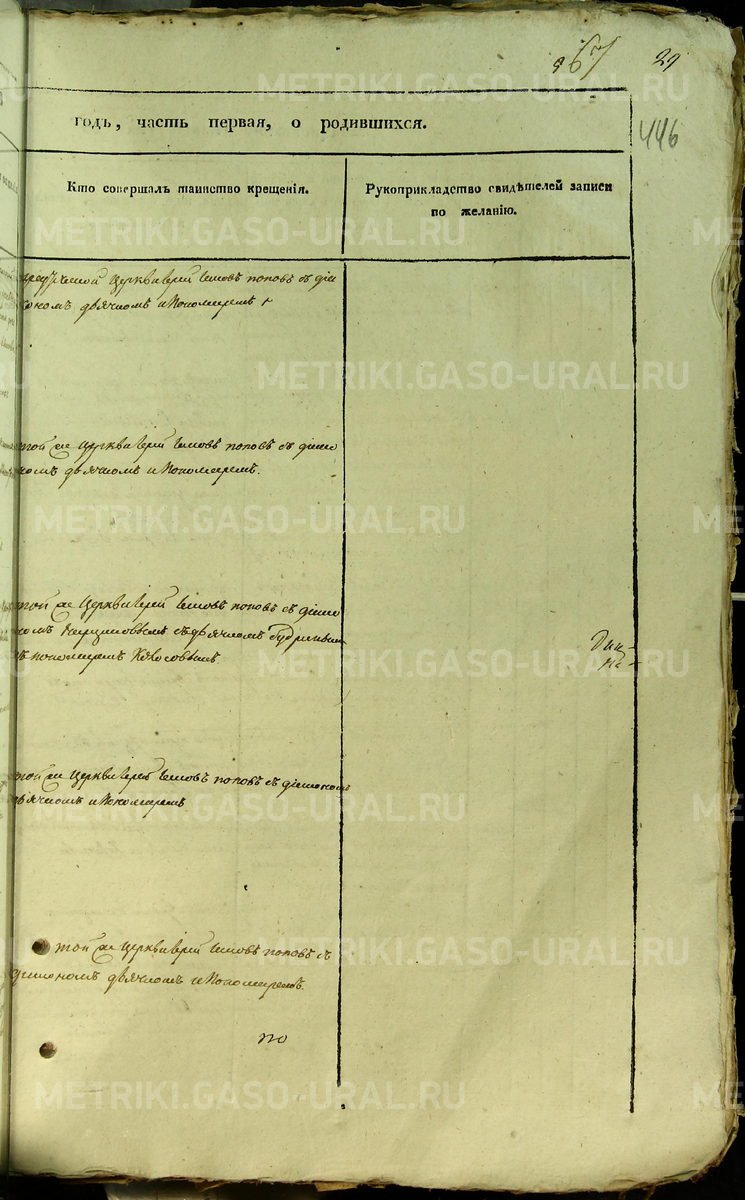 29
446
годъ, часть первая, о родившихся.
Кто совершалъ таинство крещенія.
Рукоприкладство свидѣтелей записи
по желанію.
Церкви Іерей Іаковъ Поповъ съ діа
кономъ дьячкомъ и Пономаремъ
той же Церкви Іерей Іаковъ Поповъ съ діако
номъ дьячкомъ и Пономаремъ.
той же Церкви Іерей Іаковъ Поповъ съ діако
номъ съ дьячкомъ
пономаремъ
той же Церкви Іерей Іаковъ Поповъ съ діакономъ
дьячкомъ и Пономаремъ
той же Церкви Іерей Іаковъ Поповъ съ
діакономъ дьячкомъ и Пономаремъ.
по
METRIKI.GASO-URAL.RU